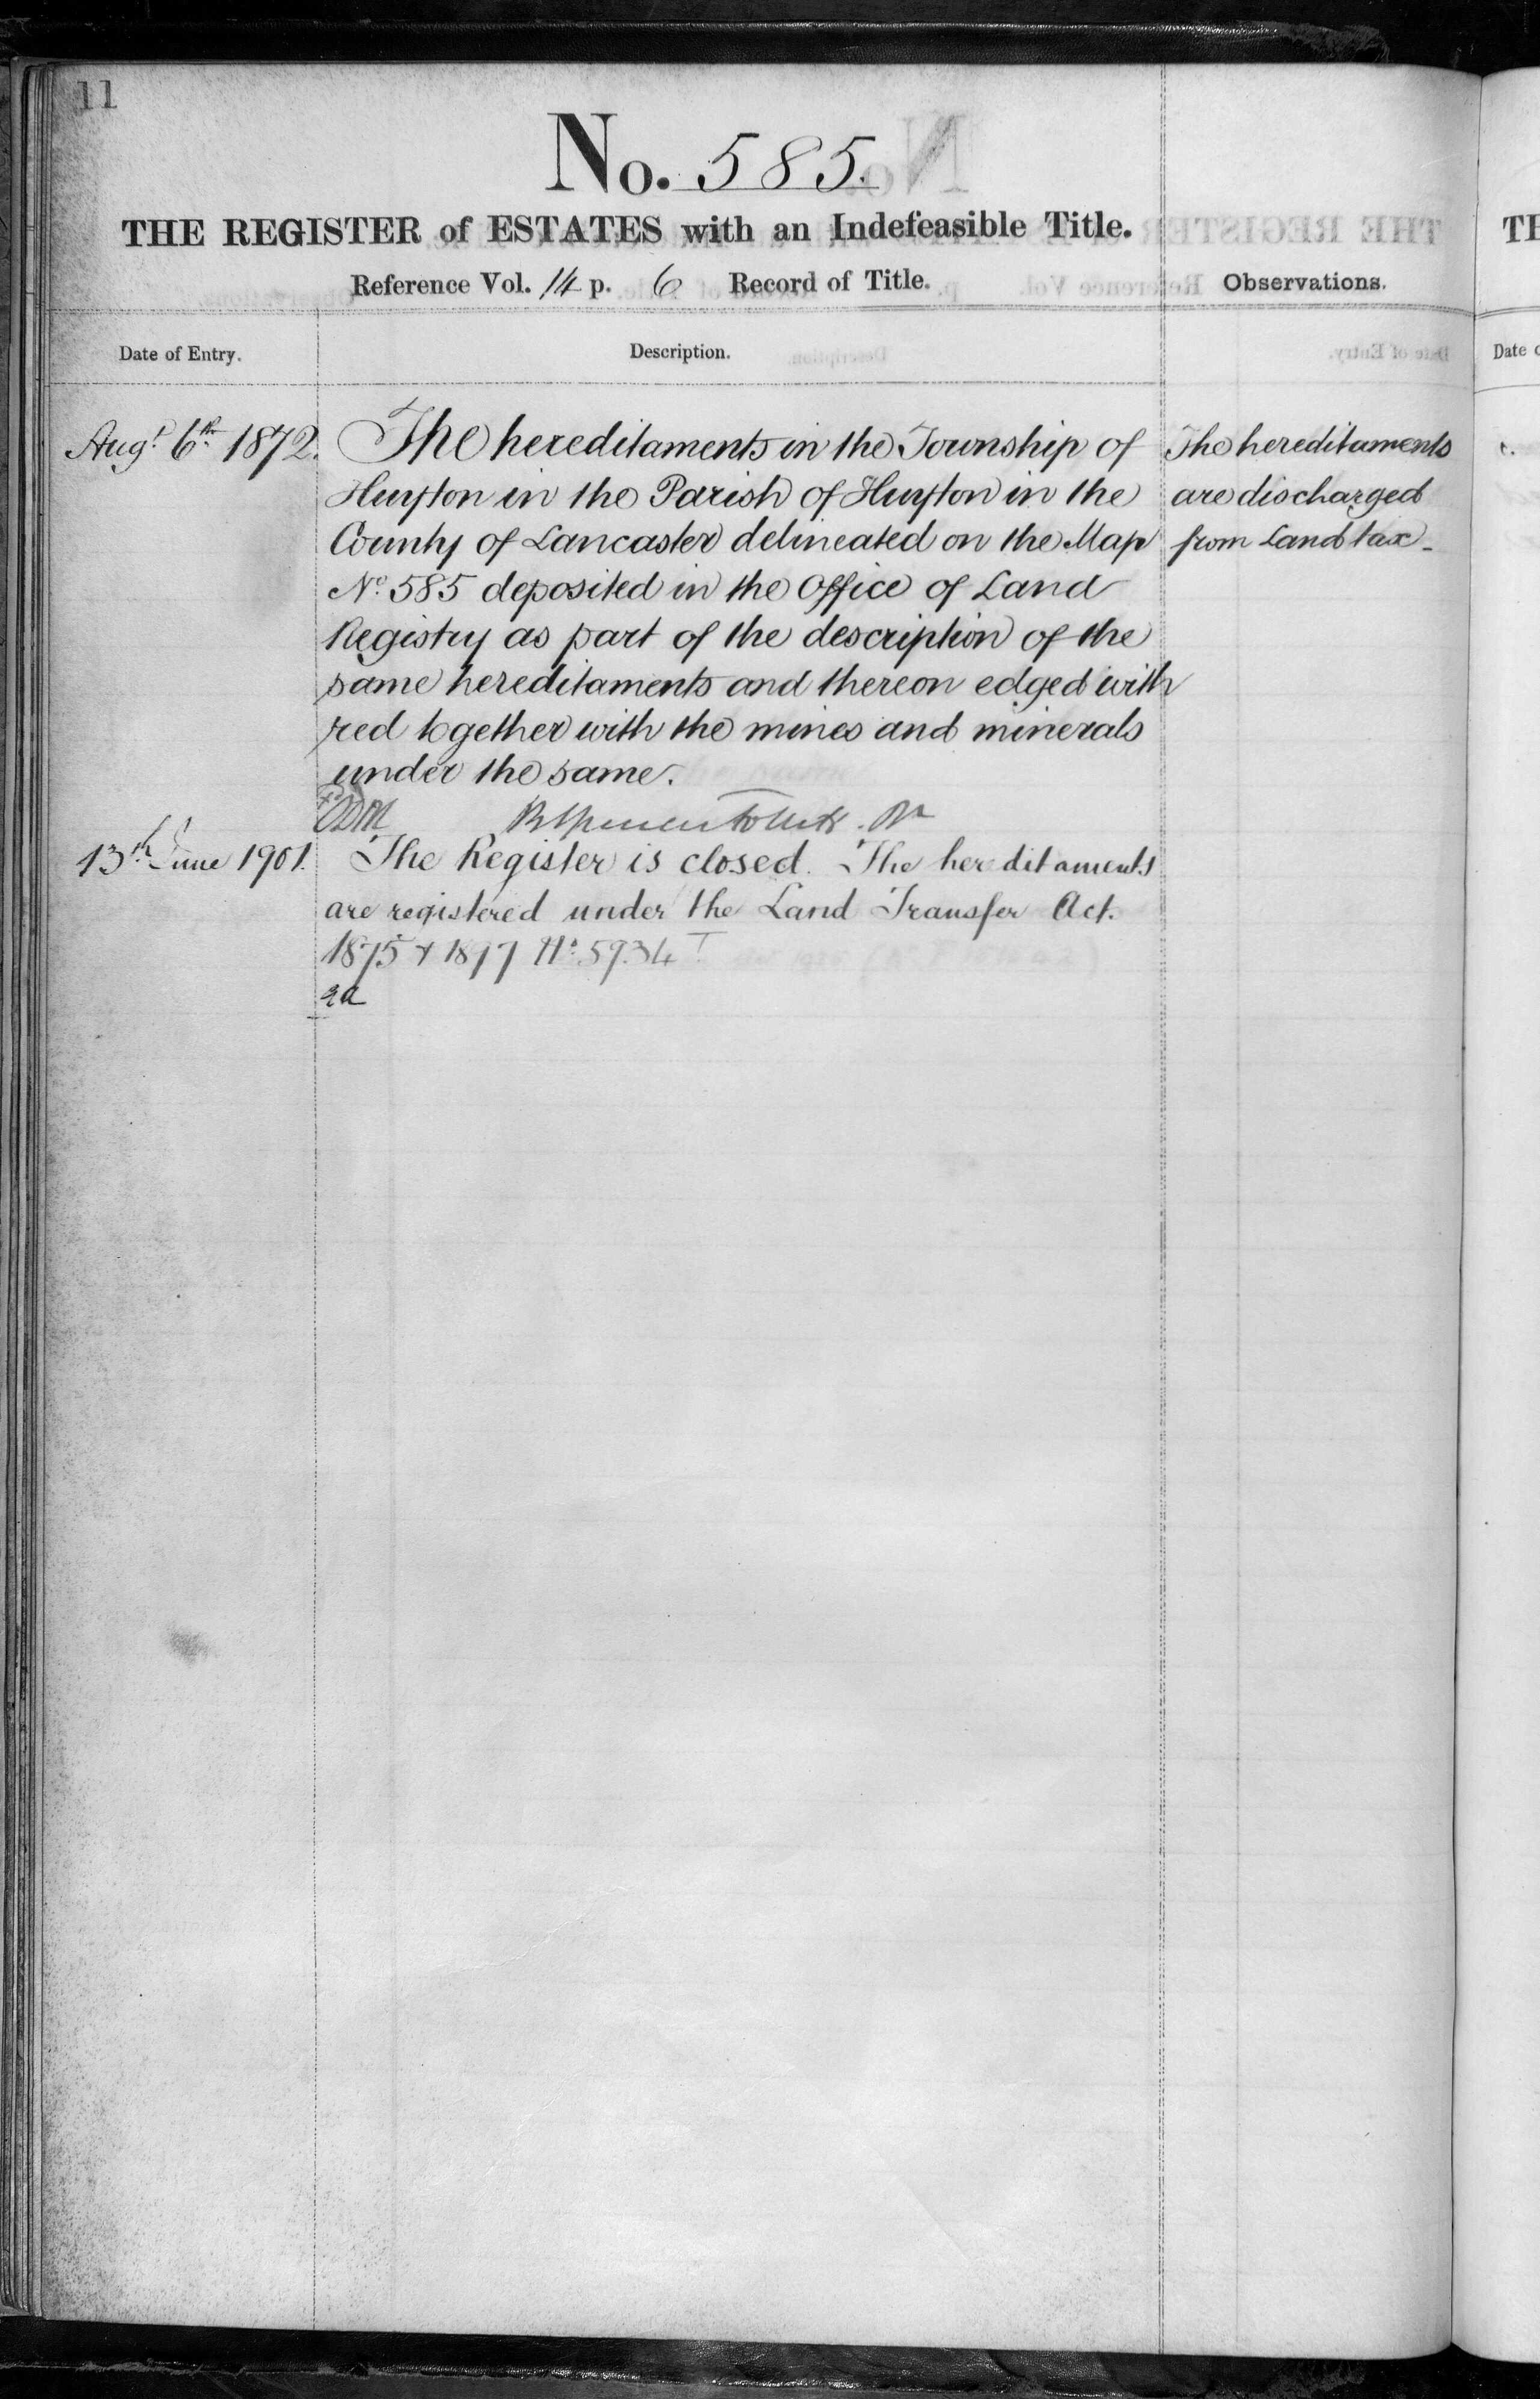 11
No. 585.
THE REGISTER of ESTATES with an Indefeasible Title.
Reference Vol. 14 p. 6 Record of Title.
Observations.
Date of Entry.
Description.
Augt. 6th 1872.
The hereditaments in the Township of
Huyton in the Parish of Huyton in the
County of Lancaster delineated on the Map
No. 585 deposited in the Office of Land
Registry as part of the description of the
same hereditaments and thereon edged with
red together with the mines and minerals
under the same.
The hereditaments
are discharged
from Land tax -
13th June 1901.
The Register is closed. The hereditaments
are registered under the Land Transfer Act.
1875 & 1897 No. 5934
TH
Date